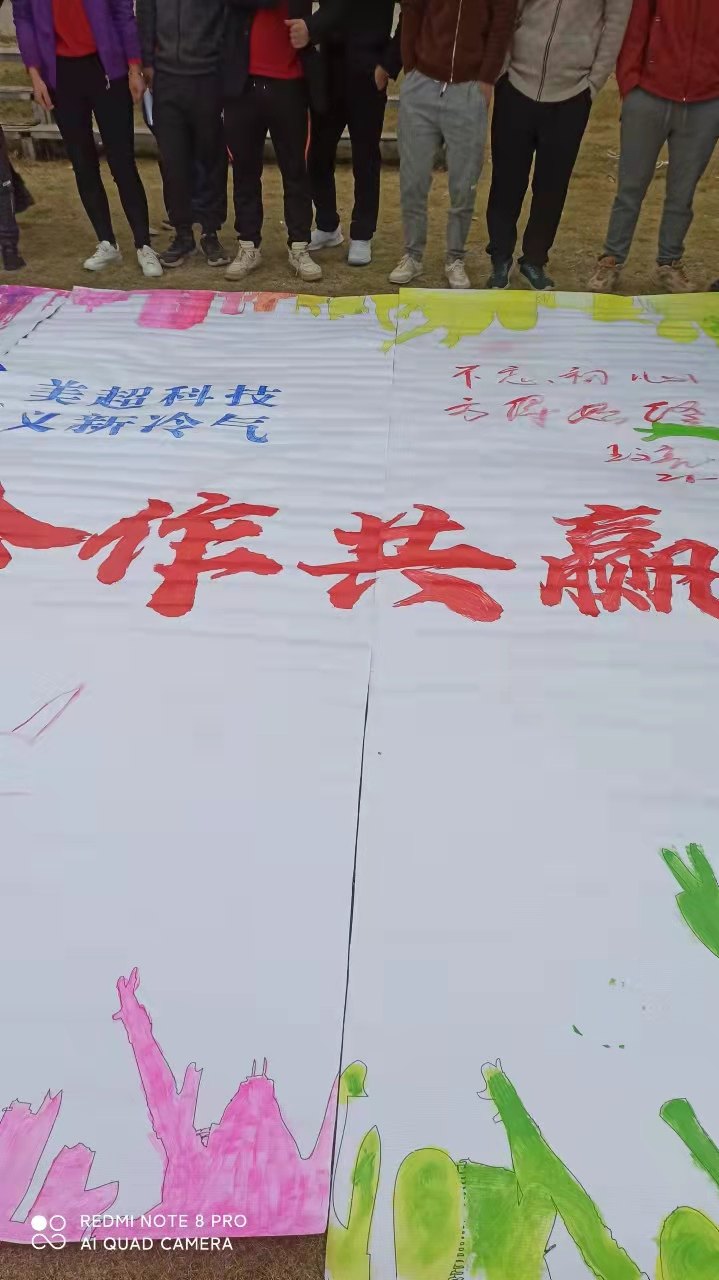 美超科技
义新冷气
不忘初心
方得始终
合作共赢
REDMI NOTE 8 PRO
AI QUAD CAMERA